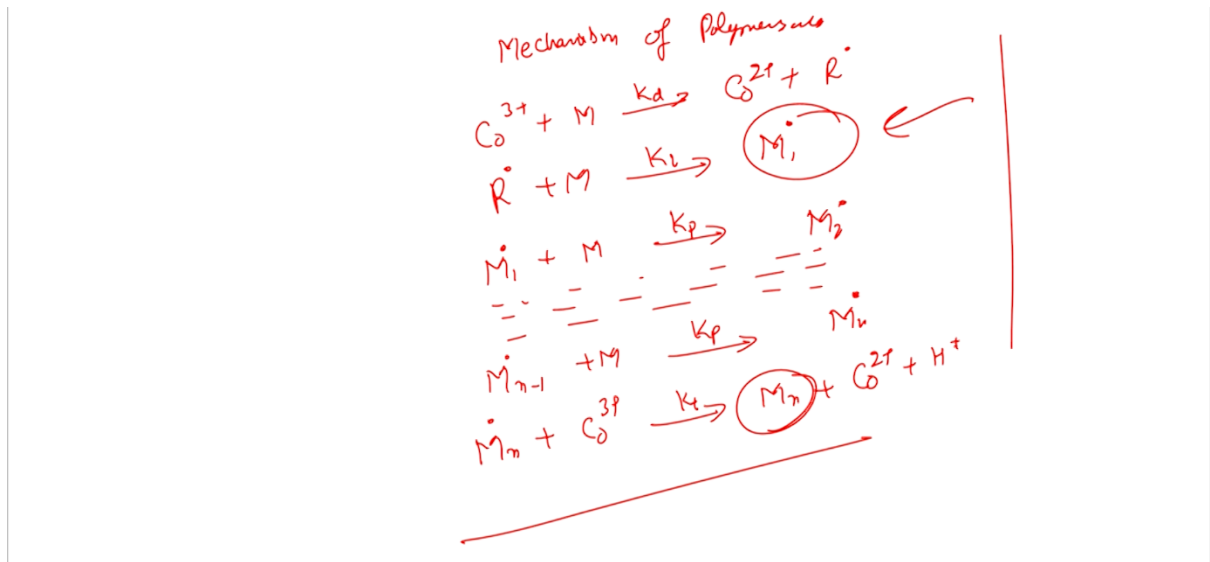 Mechanism of Polymersation
Co³⁺ + M —Kd→ Co²⁺ + R•
R• + M —Ki→ M₁•
M₁• + M —Kp→ M₂•
M•ₙ₋₁ + M —Kp→ Mₙ•
M•ₙ + Co³⁺ —Kt→ Mₙ + Co²⁺ + H⁺